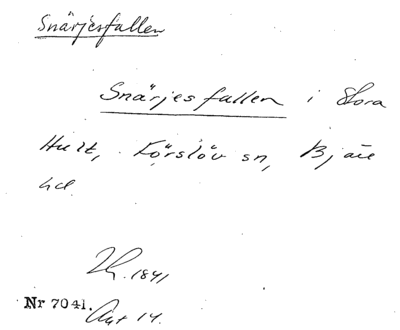 Snärjesfallen
Snärjesfallen i Stora
Hult, Förslöv sn, Bjäre
hd.
1841
Nr 7041. Akt 14.